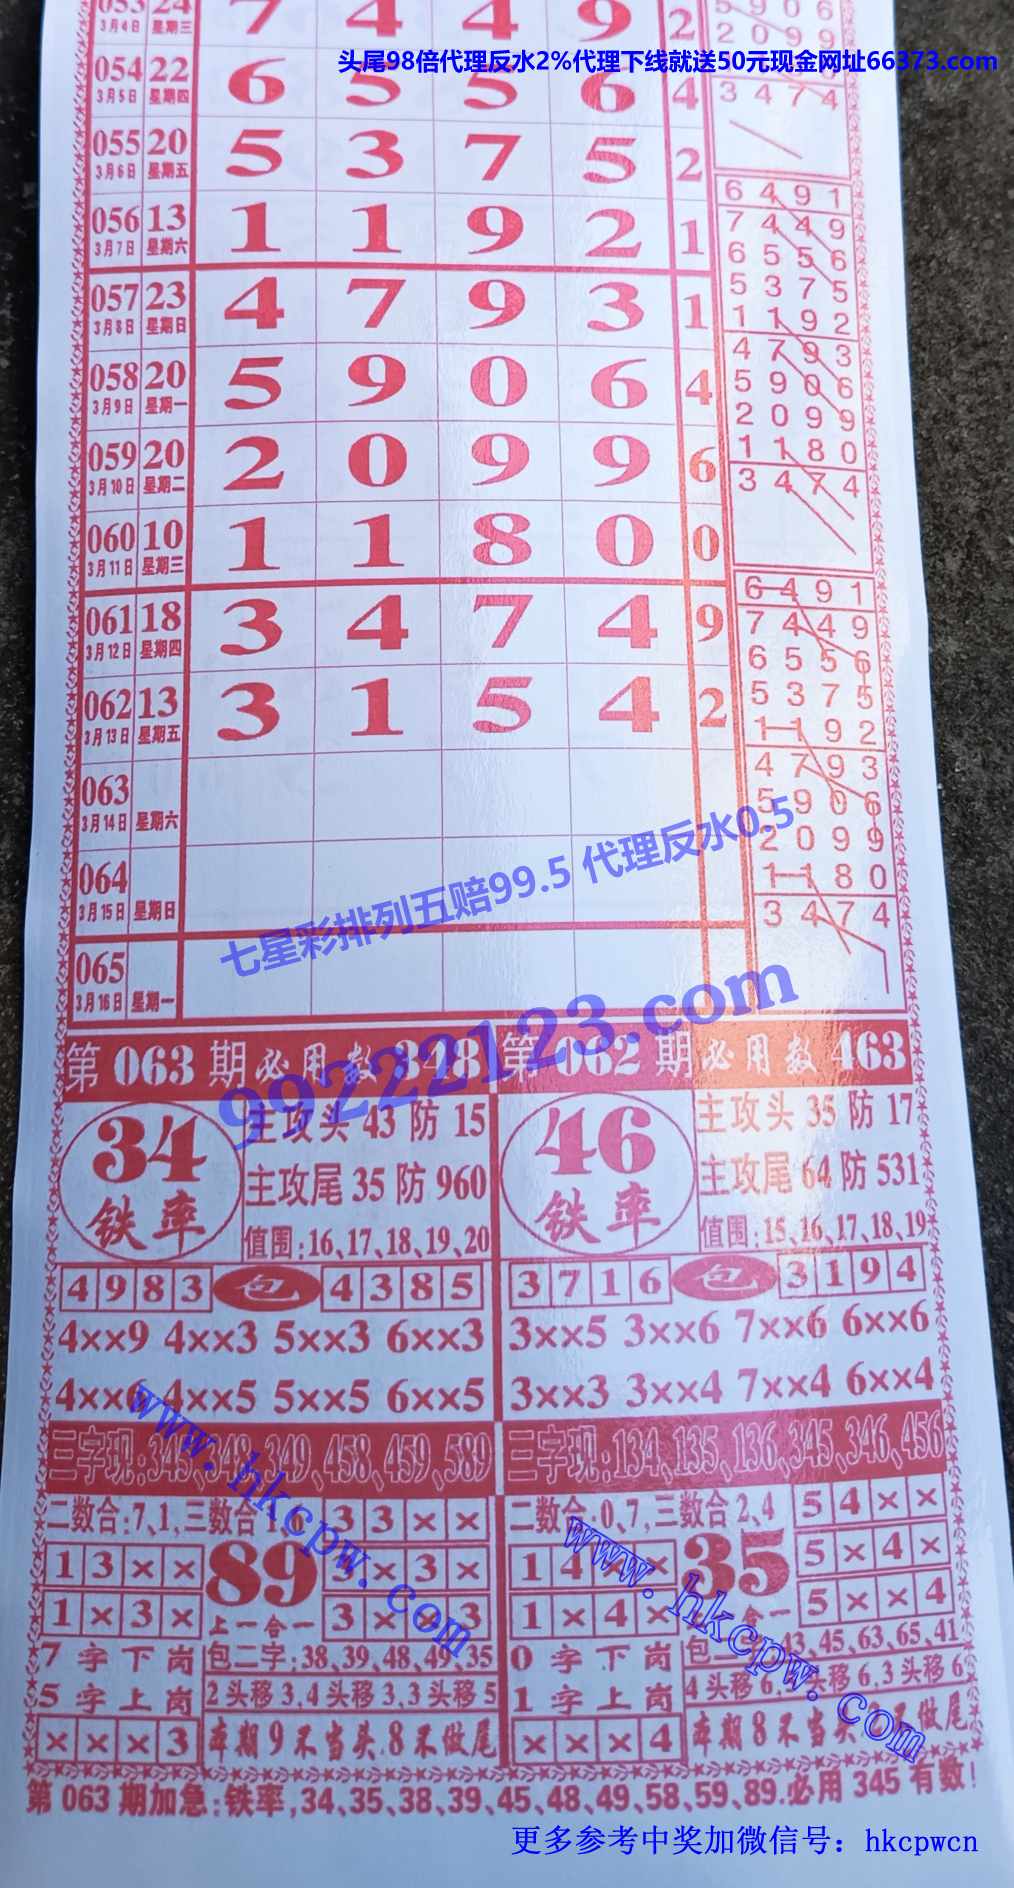 053 24 7 4 4 9 2
3月4日 星期三
头尾98倍代理反水2%代理下线就送50元现金网址66373.com
054 22 6 5 5 6 4
3月5日 星期四
055 20 5 3 7 5 2
3月6日 星期五
056 13 1 1 9 2 1
3月7日 星期六
057 23 4 7 9 3 1
3月8日 星期日
058 20 5 9 0 6 4
3月9日 星期一
059 20 2 0 9 9 6
3月10日 星期二
060 10 1 1 8 0 0
3月11日 星期三
061 18 3 4 7 4 9
3月12日 星期四
062 13 3 1 5 4 2
3月13日 星期五
063
3月14日 星期六
064
3月15日 星期日
065
3月16日 星期一
5 9 0 6
2 0 9 9
3 4 7 4
6 4 9 1
7 4 4 9
6 5 5 6
5 3 7 5
1 1 9 2
4 7 9 3
5 9 0 6
2 0 9 9
1 1 8 0
3 4 7 4
6 4 9 1
7 4 4 9
6 5 5 6
5 3 7 5
1 1 9 2
4 7 9 3
5 9 0 6
2 0 9 9
1 1 8 0
3 4 7 4
七星彩排列五赔99.5 代理反水0.5
99222123.com
第063期必用数348
34
铁率
主攻头43防15
主攻尾35防960
值围:16、17、18、19、20
4983 包 4385
4××9 4××3 5××3 6××3
4××6 4××5 5××5 6××5
三字现:345、348、349、458、459、589
二数合:7、1,三数合
33××
13×× 89 ×3×
1×3× 上一合一 3××3
7字下岗
包二字:38、39、48、49、35
5字上岗
2头移3,4头移3,3头移5
×××3
本期9不当头8不做尾
第062期必用数463
46
铁率
主攻头35防17
主攻尾64防531
值围:15、16、17、18、19
3716 包 3194
3××5 3××6 7××6 6××6
3××3 3××4 7××4 6××4
三字现:134、135、136、345、346、456
二数合:0、7,三数合2、4
54××
14×× 35 5×4×
1×4× 合一 5××4
0字下岗
包二 43、45、63、65、41
1字上岗
4头移6, 头移6,3头移6
×××4
本期8不当头 不做尾
www.hkcpw.com
www.hkcpw.com
第063期加急:铁率,34、35、38、39、45、48、49、58、59、89.必用345有数!
更多参考中奖加微信号：hkcpwcn